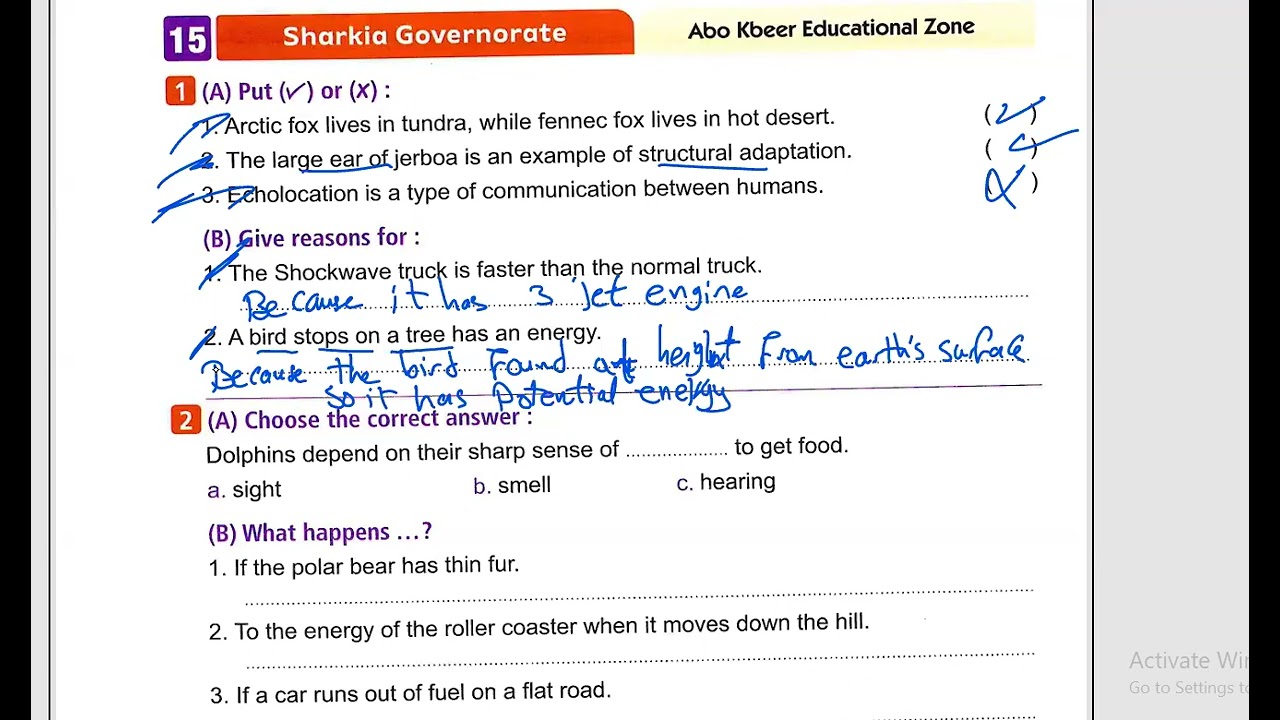 15 Sharkia Governorate Abo Kbeer Educational Zone
1 (A) Put (✓) or (x) :
1. Arctic fox lives in tundra, while fennec fox lives in hot desert. (✓)
2. The large ear of jerboa is an example of structural adaptation. (✓)
3. Echolocation is a type of communication between humans. (x)
(B) Give reasons for :
1. The Shockwave truck is faster than the normal truck.
Because it has 3 jet engine
2. A bird stops on a tree has an energy.
Because the bird found at height from earth's surface
so it has Potential energy
2 (A) Choose the correct answer :
Dolphins depend on their sharp sense of .................. to get food.
a. sight b. smell c. hearing
(B) What happens ...?
1. If the polar bear has thin fur.
2. To the energy of the roller coaster when it moves down the hill.
3. If a car runs out of fuel on a flat road.
Activate Wi
Go to Settings t